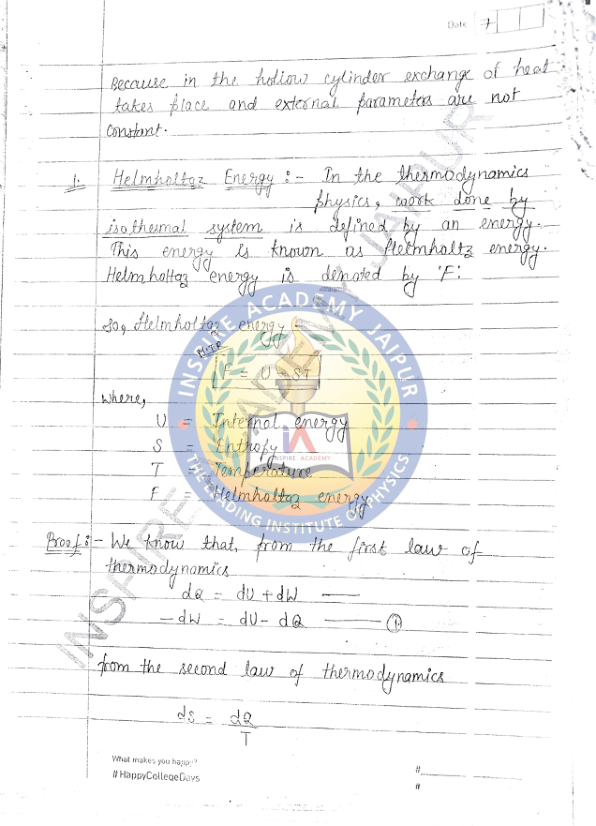 Date 7
Because in the hollow cylinder exchange of heat
takes place and external parameters are not
constant.
1. Helmholtaz Energy :- In the thermodynamics
physics, work done by
isothermal system is defined by an energy.
This energy is known as Helmholtz energy.
Helmholtaz energy is denoted by 'F'.
So, Helmholtaz energy =
F = U - ST
where,
U = Internal energy
S = Entropy
T = Temperature
F = Helmholtaz energy.
Proof :- We know that, from the first law of
thermodynamics
dQ = dU + dW ——
-dW = dU - dQ —— ①
from the second law of thermodynamics
dS = dQ
T
What makes you happy?
#HappyCollegeDays
#
#
INSPIRE ACADEMY JAIPUR
THE LEADING INSTITUTE OF PHYSICS
iA
INSPIRE ACADEMY
INSPIRE ACADEMY JAIPUR